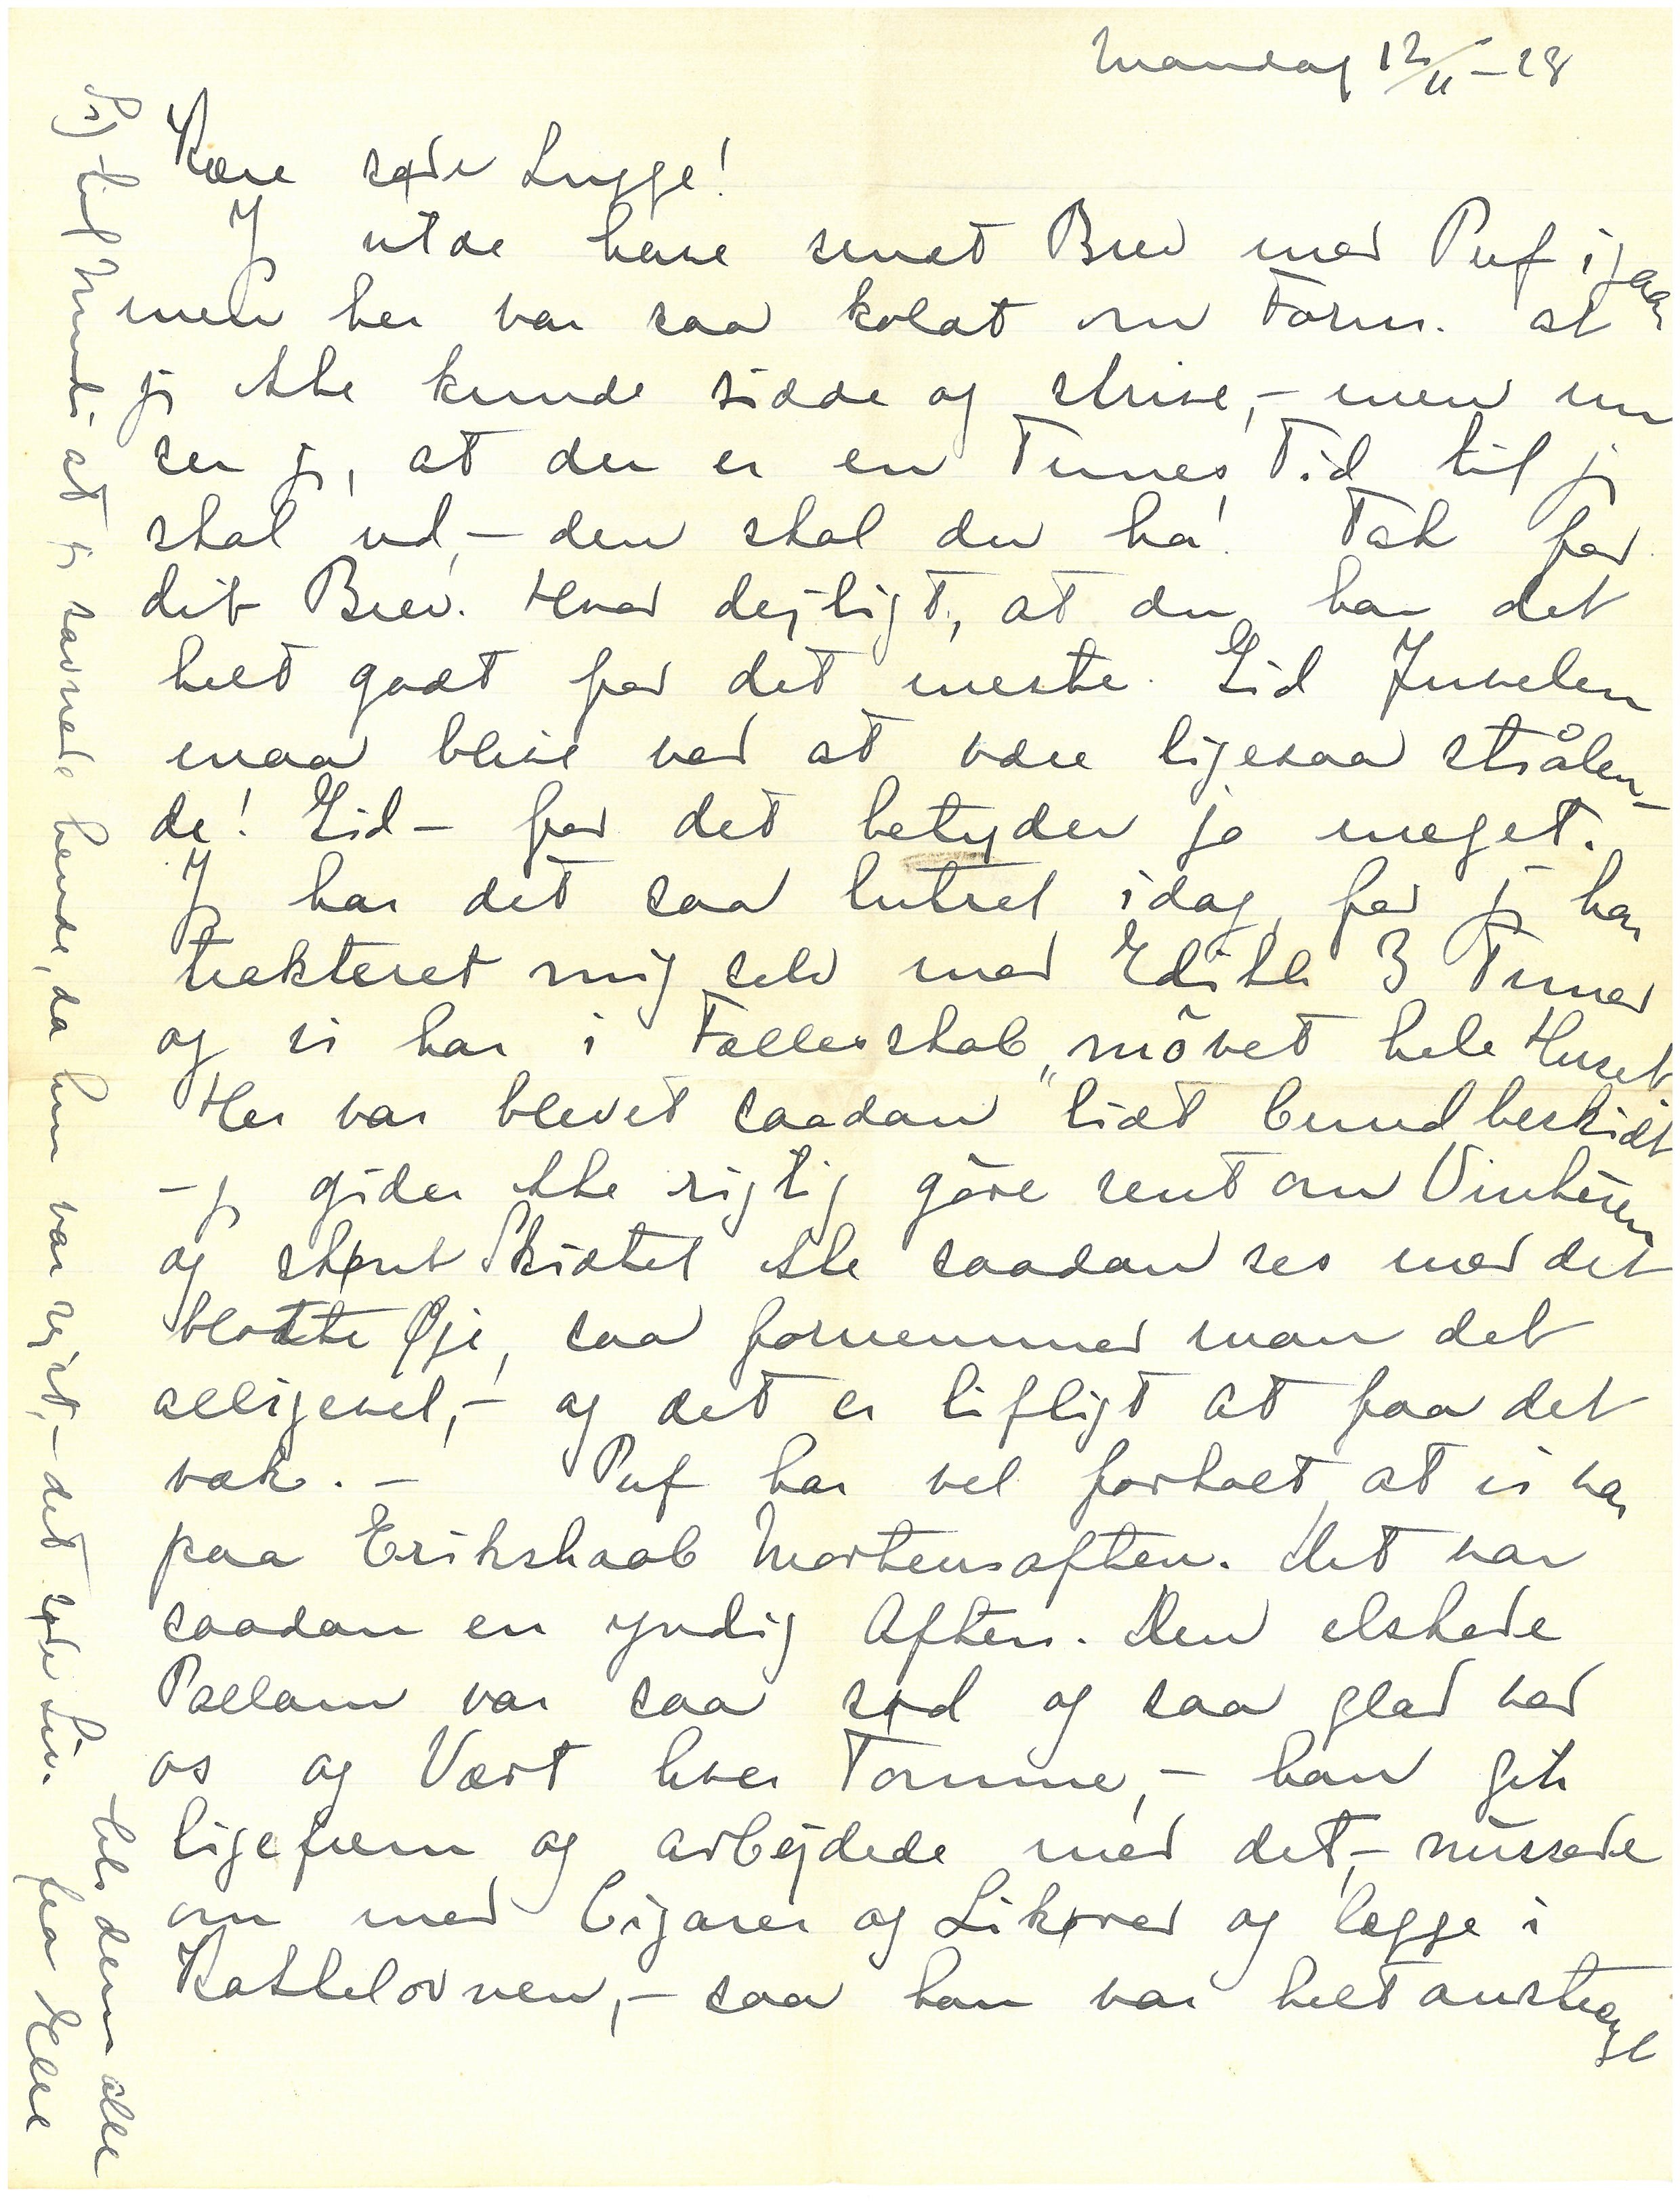 Mandag 12/11-28
Kære søde Lugge!
Jg vilde have sendt Brev med Puf igaar
men her var saa koldt om Form. at
jg ikke kunde sidde og skrive,- men nu
ser jg, at der er en Times Tid til jg
skal ud,- den skal du ha! Tak for
dit Brev. Hvor dejligt, at du har det
helt godt for det meste. Gid Juvelen
maa blive ved at være ligesaa strålen-
de! Gid- for det betyder jo meget.
Jg har det saa lutret idag, for jg har
trakteret mig selv med Edith 3 Timer
og vi har i Fællesskab „møvet hele Huset
Her var blevet saadan lidt bundbeskidt
- jg gider ikke rigtig gøre rent om Vinteren
og skønt Skidtet ikke saadan ses med det
blotte Øje, saa fornemmer man det
alligevel,- og det er lifligt at faa det
væk. - Puf har vel fortalt, at vi var
paa Erikshaab Mortensaften. Det var
saadan en yndig Aften. Den elskede
Pallam var saa sød og saa glad ved
os og Vært hver Tomme,- han gik
ligefrem og arbejdede med det,- nussede
om med Cigarer og Likører og lægge i
Kakkelovnen,- saa han var helt anstrengt
Sig til at jg savnede hende, da hun var rejst,- det søde Liv.
Hils dem alle
fra Elle